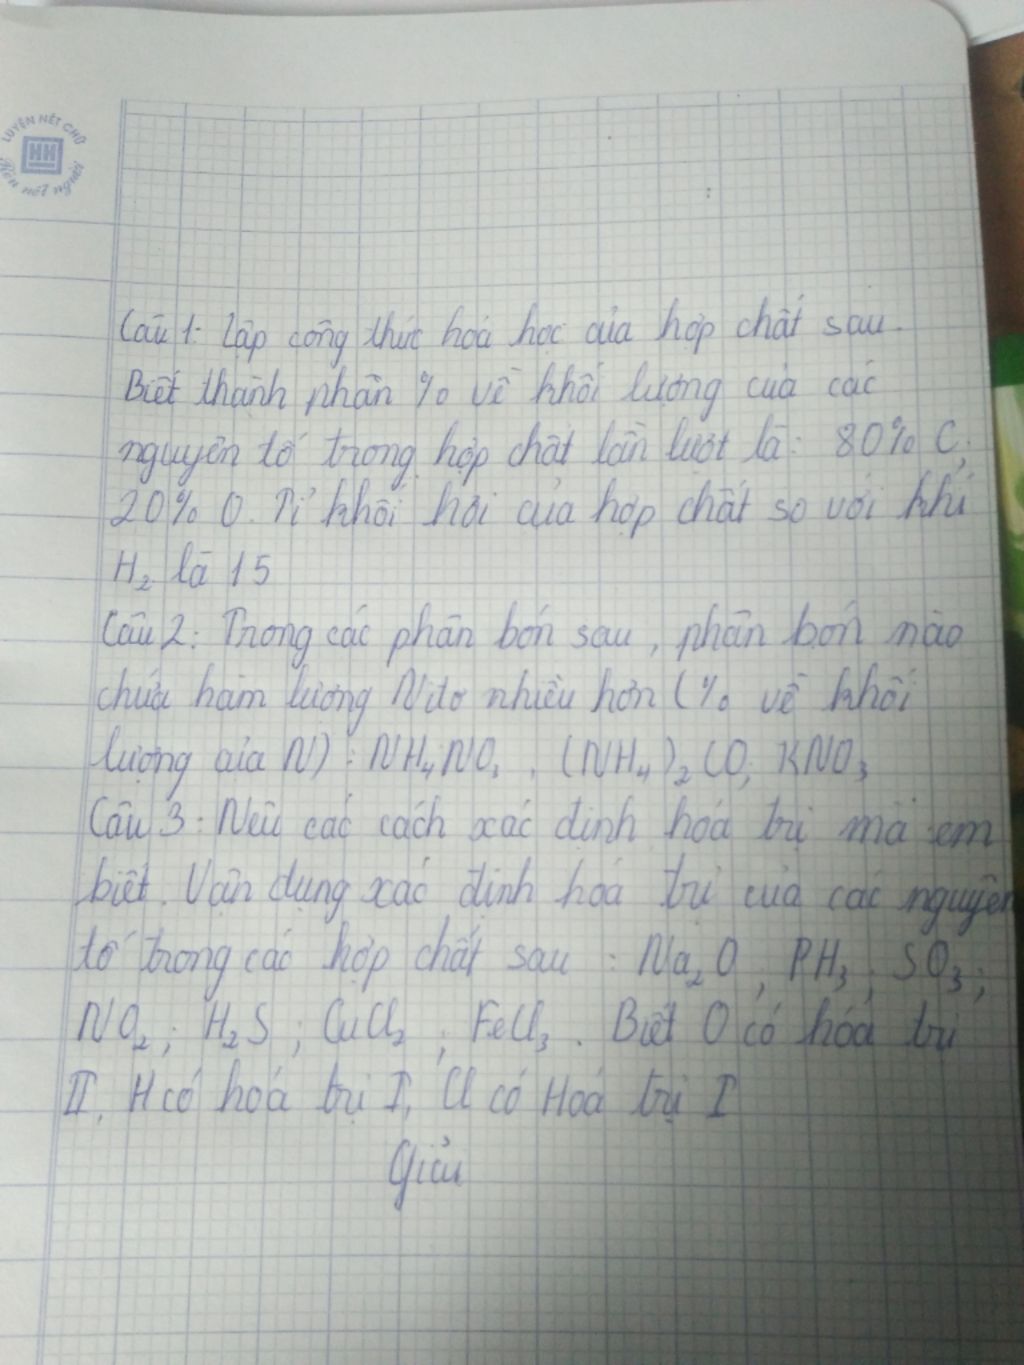 LUYỆN NÉT CHỮ
HH
Rèn nết người
Câu 1: Lập công thức hoá học của hợp chất sau.
Biết thành phần % về khối lượng của các
nguyên tố trong hợp chất lần lượt là: 80% C,
20% O. Tỉ khối hơi của hợp chất so với khí
H₂ là 15
Câu 2: Trong các phân bón sau, phân bón nào
chứa hàm lượng Nitơ nhiều hơn (% về khối
lượng của N): NH₄NO₃, (NH₄)₂CO, KNO₃
Câu 3: Nêu các cách xác định hoá trị mà em
biết. Vận dụng xác định hoá trị của các nguyên
tố trong các hợp chất sau: Na₂O, PH₃, SO₃;
NO₂; H₂S; CuCl₂; FeCl₃. Biết O có hóa trị
II, H có hoá trị I, Cl có Hoá trị I
Giải